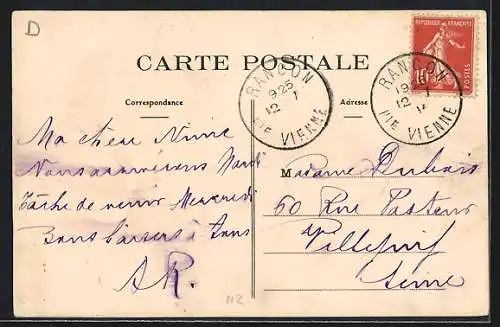 D
CARTE POSTALE
Correspondance
Adresse
REPUBLIQUE FRANÇAISE
10
POSTES
RANCON
19 25
12 1
Hte VIENNE
RANCON
12 1
Hte VIENNE
Ma chère Ninie
Nous arriverons Mardi
Tâche de venir Mercredi
Bons baisers à tous
A.R.
Madame Dubois
60 Rue Pasteur
Villejuif
Seine
112